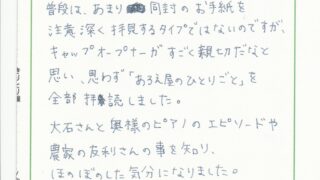 普段は、あまり同封のお手紙を
注意深く拝見するタイプではないのですが、
キャップオープナーがすごく親切だなと
思い、思わず「あろえ屋のひとりごと」を
全部拝読しました。
大石さんと奥様のピアノのエピソードや
農家の友利さんの事を知り、
ほのぼのした気分になりました。